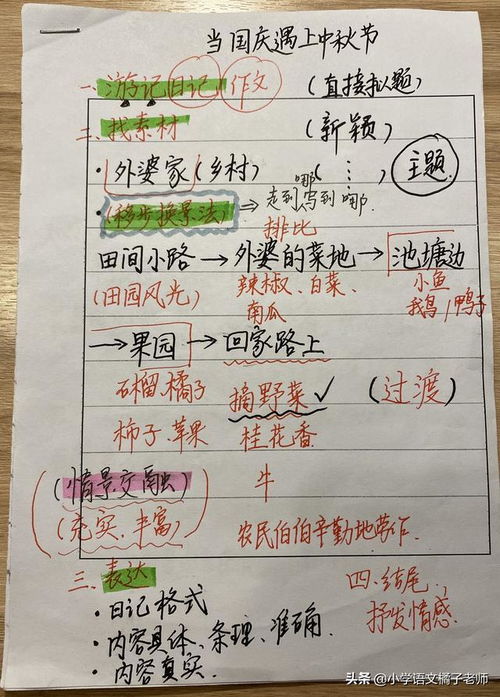 当国庆遇上中秋节
一.游记日记作文(直接拟题)
二.找素材 (新颖)
·外婆家(乡村) (⋮) 主题
·(移步换景法)⇒走到哪写到哪.
排比
田间小路→外婆的菜地→池塘边
(田园风光) 辣椒、白菜、南瓜 小鱼 我鸟/鸭子
→果园→回家路上
石榴.橘子 摘野菜✓ (过渡)
柿子.苹果 桂花香
(情景交融) 牛
(充实.丰富) 农民伯伯辛勤地劳作.
三.表达 四.结尾.
·日记格式 抒发情感.
·内容具体、条理、准确.
·内容真实.
头条 @小学语文橘子老师